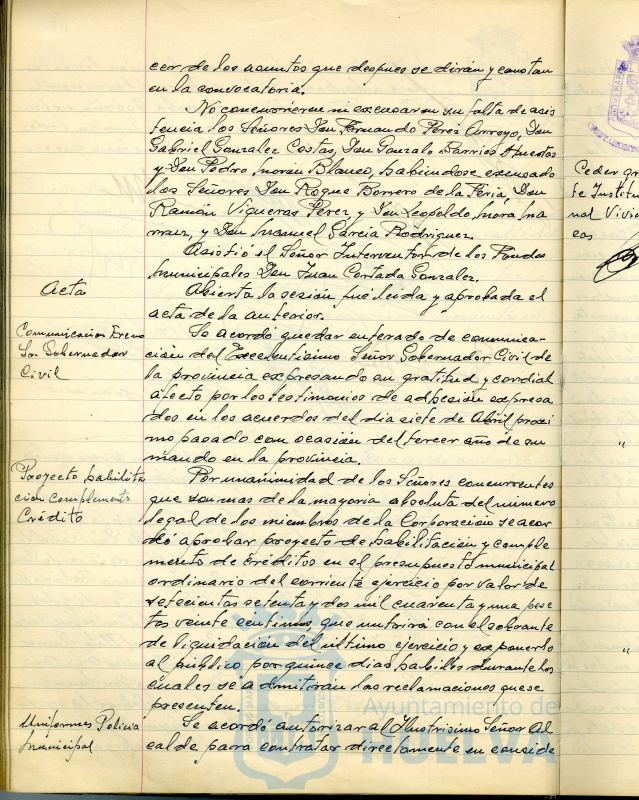 cer de los asuntos que despues se dirán y constan
en la convocatoria.
No concurrieron ni excusaron su falta de asis
tencia los Señores Don Fernando Perez Arroyo, Don
Gabriel Gonzalez Costas, Don Gonzalo Barrios Apuestas
y Don Pedro Morán Blanco, habiendose excusado
los Señores Don Roque Borrero de la Feria, Don
Ramón Vigueras Perez y Don Leopoldo Mora Na
rraez, y Don Manuel Garcia Rodriguez.
Asistió el Señor Interventor de los Fondos
Municipales Don Juan Cortada Gonzalez.
Acta
Abierta la sesión fué leida y aprobada el
acta de la anterior.
Comunicacion Excmo
Sr. Gobernador
Civil
Se acordó quedar enterado de comunica-
ción del Excelentisimo Señor Gobernador Civil de
la provincia expresando su gratitud y cordial
afecto por los testimonios de adhesión expresa
dos en los acuerdos del dia siete de Abril proxi
mo pasado con ocasión del tercer año de su
mando en la provincia.
Proyecto habilita
cion complemento
Crédito
Por unanimidad de los Señores concurrentes
que son mas de la mayoria absoluta del número
legal de los miembros de la Corporación se acor
dó aprobar proyecto de habilitacion y comple
mento de créditos en el presupuesto municipal
ordinario del corriente ejercicio por valor de
setecientas setenta y dos mil cuarenta y una pese
tas veinte centimos, que nutrirá con el sobrante
de liquidación del último ejercicio y exponerlo
al público por quince dias habiles durante los
cuales se admitirán las reclamaciones que se
presenten.
Uniformes Policia
Municipal
Se acordó autorizar al Ilustrisimo Señor Al
calde para contratar directamente en conside
Ceder gr
te Institu
nal Vivie
cas
"
"
Ayuntamiento de
HUELVA